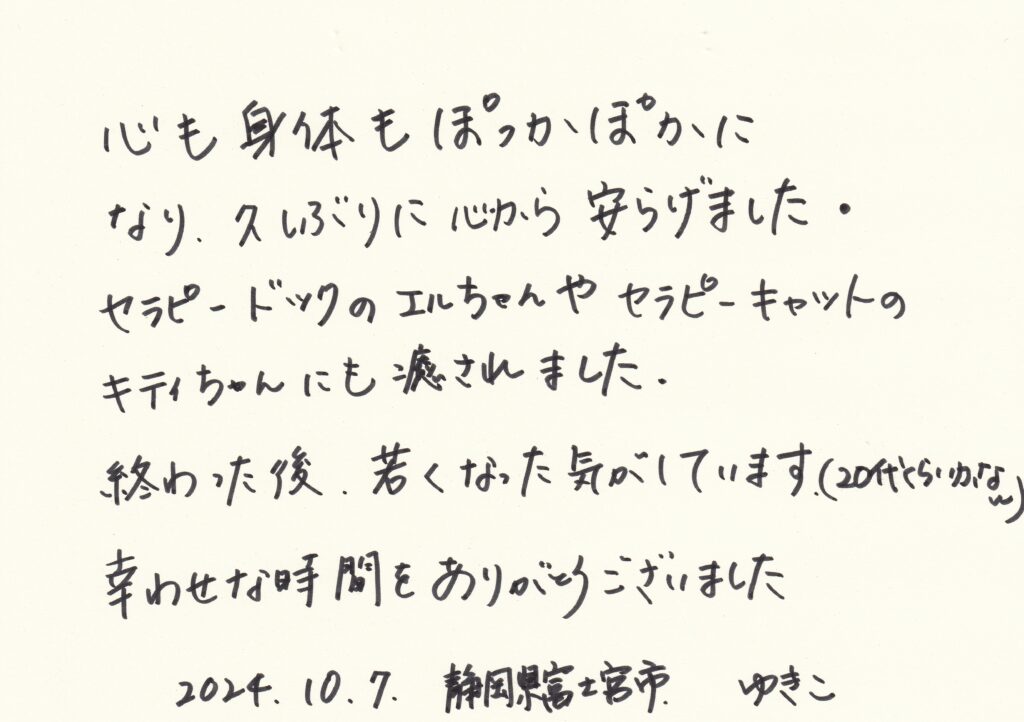 心も身体もぽっかぽかに
なり、久しぶりに心から安らげました。
セラピードックのエルちゃんやセラピーキャットの
キティちゃんにも癒されました。
終わった後、若くなった気がしています。(20代くらいかな〜)
幸わせな時間をありがとうございました
2024.10.7. 静岡県富士宮市. ゆきこ